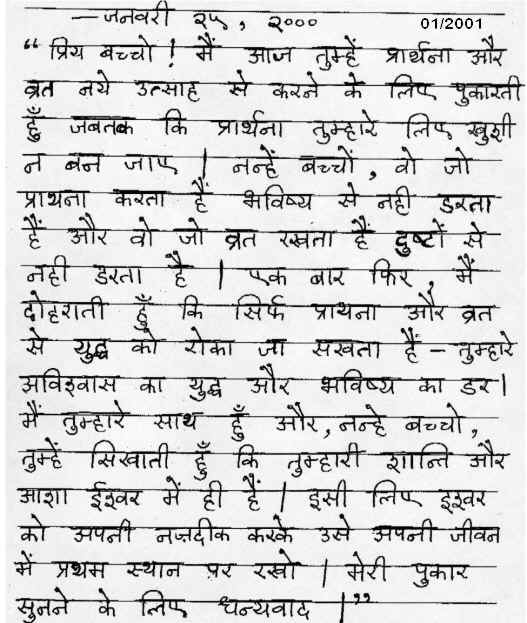 — जनवरी २५, २००० 01/2001
“ प्रिय बच्चो ! मैं आज तुम्हें प्रार्थना और
व्रत नये उत्साह से करने के लिए पुकारती
हूँ जबतक कि प्रार्थना तुम्हारे लिए खुशी
न बन जाए | नन्हें बच्चों, वो जो
प्राथना करता हैं भविष्य से नही डरता
हैं और वो जो व्रत रखता हैं दुष्टों से
नही डरता है | एक बार फिर, मैं
दोहराती हूँ कि सिर्फ प्राथना और व्रत
से युद्ध को रोका जा सखता हैं – तुम्हारे
अविश्वास का युद्ध और भविष्य का डर |
मैं तुम्हारे साथ हूँ और, नन्हे बच्चो,
तुम्हें सिखाती हूँ कि तुम्हारी शान्ति और
आशा ईश्वर में ही हैं | इसी लिए इश्वर
को अपनी नज़दीक करके उसे अपनी जीवन
में प्रथम स्थान पर रखो | मेरी पुकार
सुनने के लिए धन्यवाद |”